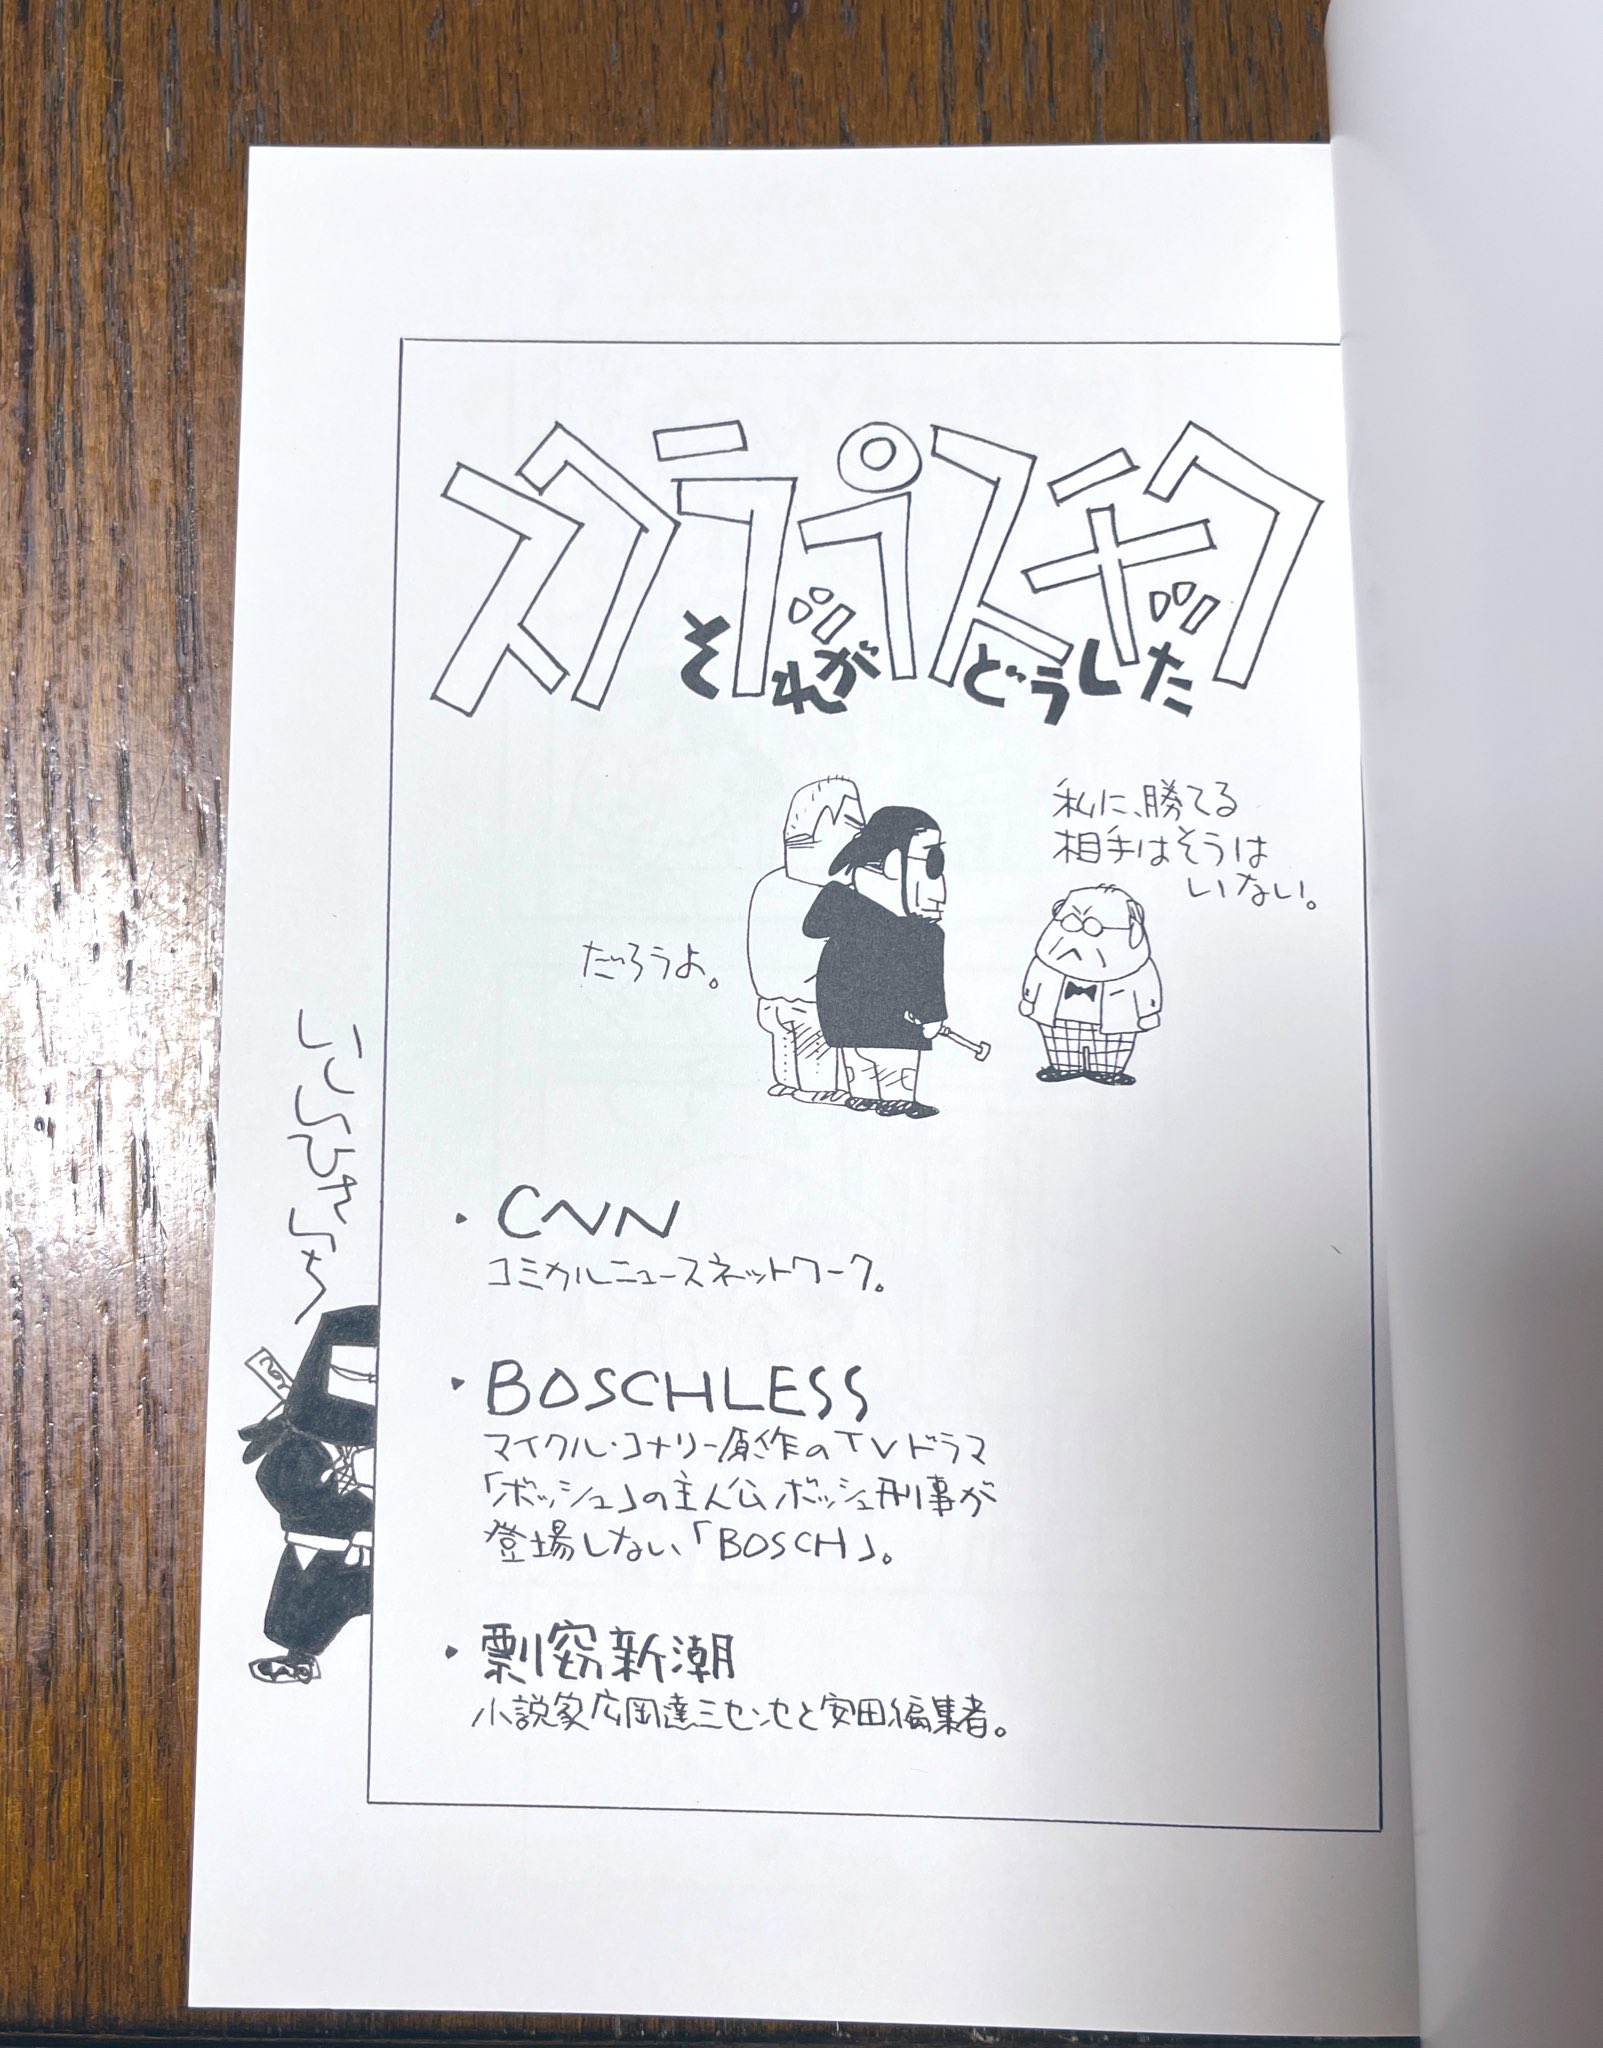 スクラップスチック
それがどうした
私に、勝てる
相手はそうは
いない。
だろうよ。
いしいひさいち
・CNN
コミカルニュースネットワーク。
・BOSCHLESS
マイクル・コナリー原作のTVドラマ
「ボッシュ」の主人公ボッシュ刑事が
登場しない「BOSCH」。
・剽窃新潮
小説家広岡達三センセと安田編集者。